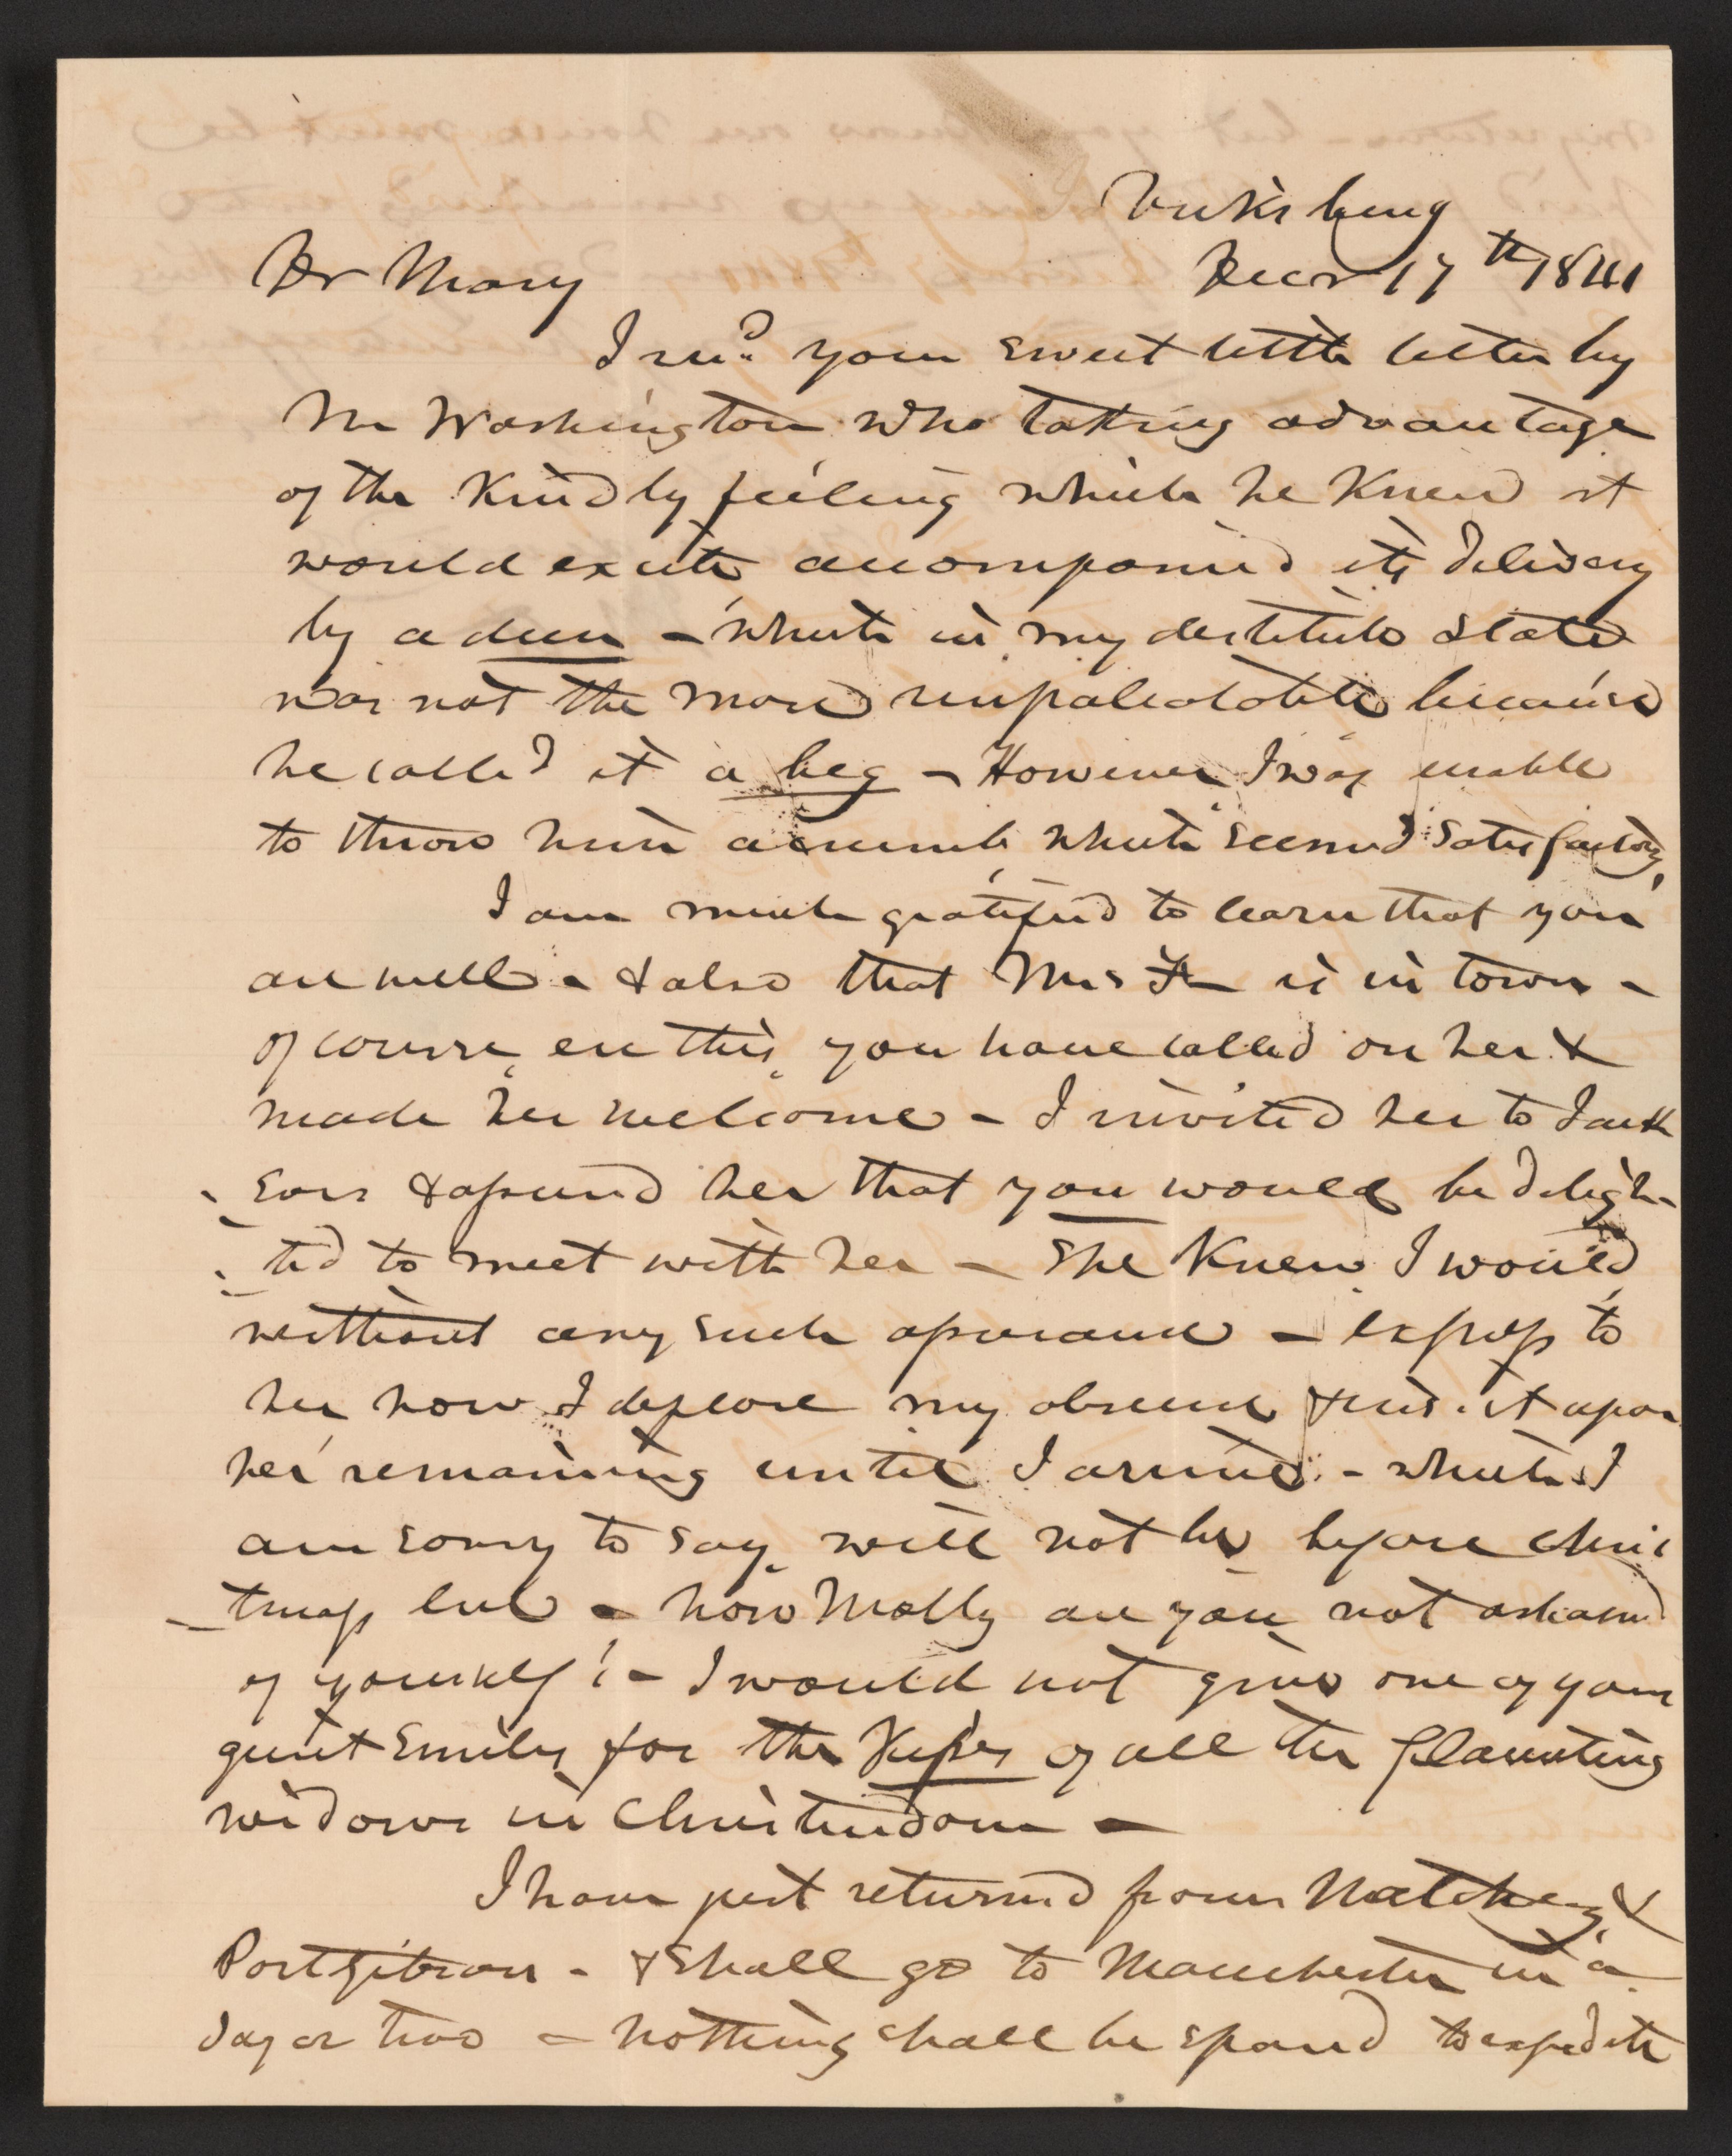 Vicksburg
Dr Mary Decr 17th 1841
I recd. your sweet little letter by
Mr Washington who taking advantage
of the kindly feeling which he knew it
would excite accompanied its delivery
by a dun - which in my destitute state
was not the more unpalatable because
he called it a beg - However I was enable
to throw him a crumb which seemed satisfactory,
I am much gratified to learn that you
are well - & also that Mrs F is in town -
of course, ere this, you have called on her &
made her welcome - I invited her to Jack
son & assured her that you would be deligh-
ted to meet with her - She knew I would
without any such assurance - express to
her how I deplore my absence & insist upon
her remaining until I arrive - which I
am sorry to say, will not be before Chris
tmass eve - now Molly are you not ashamed
of yourself! - I would not give one of your
quiet smiles for the kisses of all the flaunting
widows in Christendom -
I have just returned from Natchez &
Port Gibson - & shall go to Manchester in a
day or two - nothing shall be spared to expedite